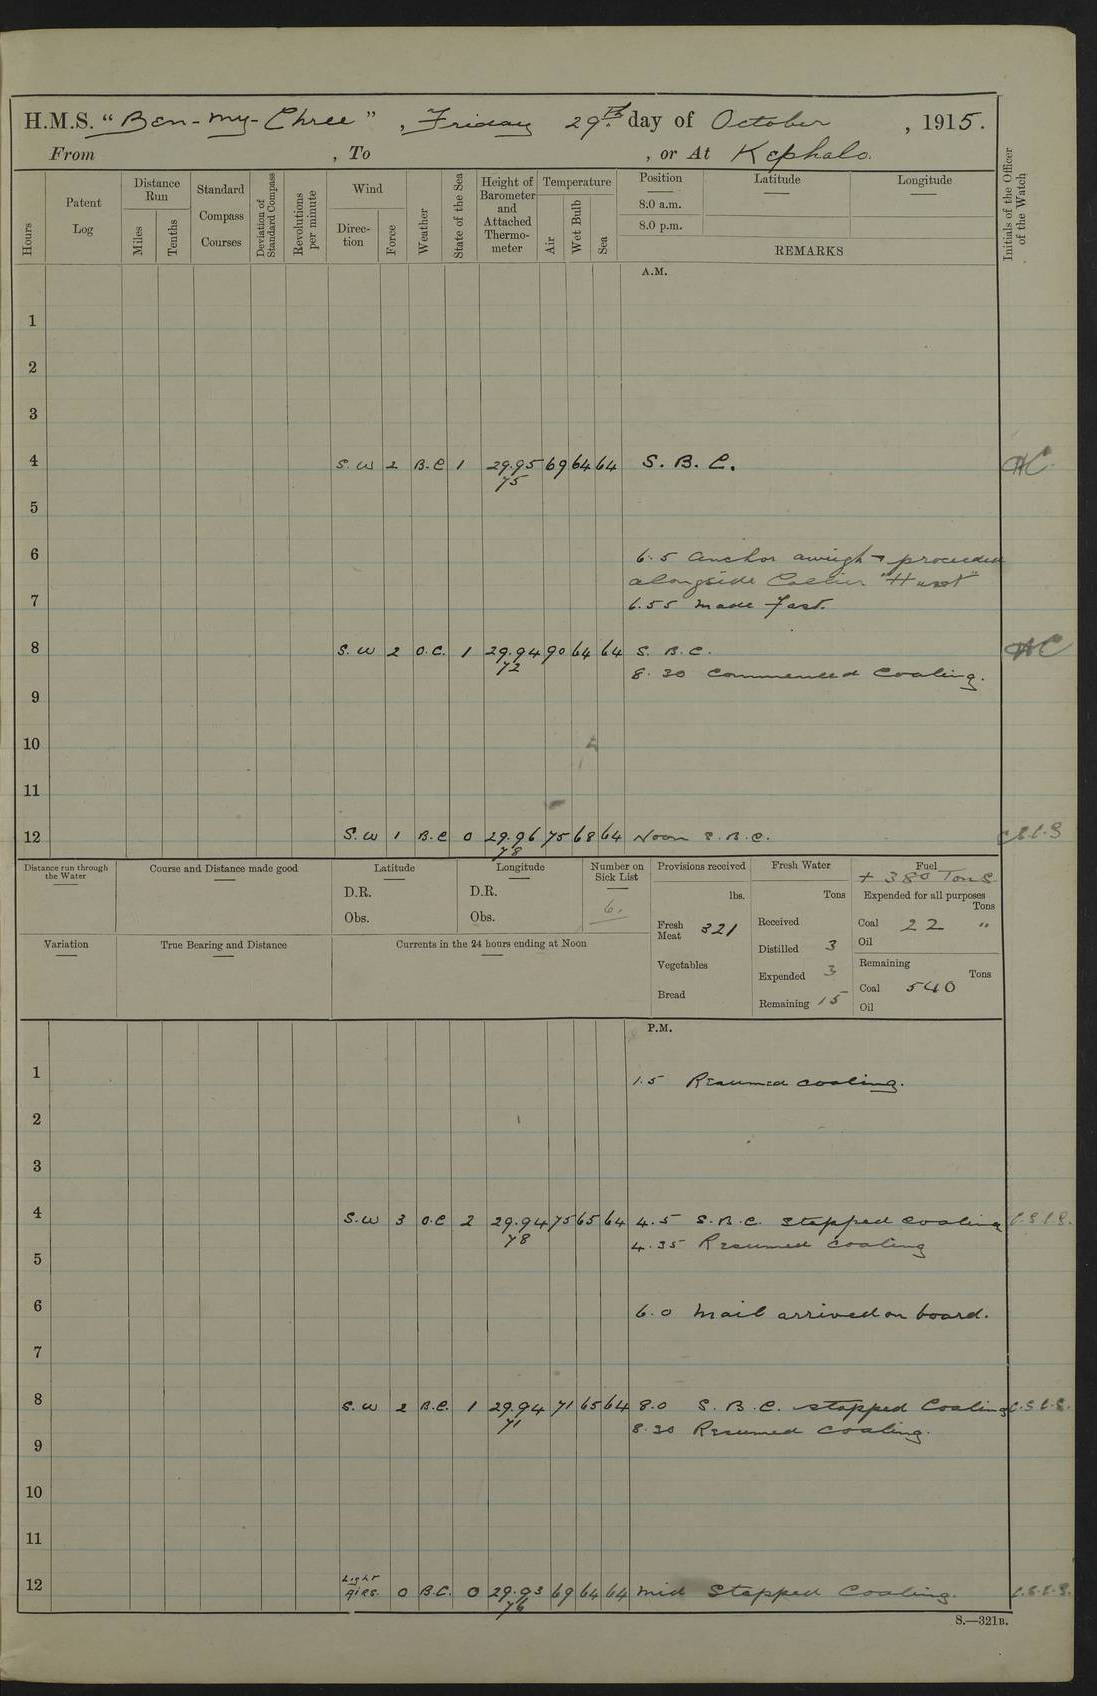 H.M.S. "Ben-my-Chree", Friday 29th day of October, 1915.
From , To , or At Kephalo.
Hours Patent Log Distance Run Miles Tenths Standard Compass Courses Deviation of Standard Compass Revolutions per minute Wind Direction Force Weather State of the Sea Height of Barometer and Attached Thermometer Temperature Air Wet Bulb Sea Position 8.0 a.m. 8.0 p.m. Latitude Longitude REMARKS Initials of the Officer of the Watch
A.M.
1
2
3
4 S.W 2 B.C 1 29.95 69 64 64 S.B.C.
75
5
6 6.5 Anchor aweigh & proceeded
alongside Collier "Hurst"
7 6.55 Made fast.
8 S.W 2 O.C. 1 29.94 90 64 64 S.B.C.
72 8.30 Commenced Coaling.
9
10
11
12 S.W 1 B.C 0 29.96 75 68 64 Noon S.B.C. C.S.L.S
78
Distance run through the Water Course and Distance made good Latitude Longitude Number on Sick List Provisions received Fresh Water Fuel
+ 380 Tons
D.R. D.R. 6. lbs. Tons Expended for all purposes Tons
Obs. Obs. Fresh Meat 321 Received Coal 22 "
Variation True Bearing and Distance Currents in the 24 hours ending at Noon Distilled 3 Oil
Vegetables Expended 3 Remaining Tons
Bread Remaining 15 Coal 540
Oil
P.M.
1 1.5 Resumed coaling.
2
3
4 S.W 3 O.C 2 29.94 75 65 64 4.5 S.B.C. Stopped coaling C.S.L.S.
78 4.35 Resumed coaling
5
6 6.0 Mail arrived on board.
7
8 S.W 2 B.C. 1 29.94 71 65 64 8.0 S.B.C. stopped Coaling C.S.L.S.
71 8.30 Resumed coaling.
9
10
11
12 Light Airs. 0 B.C. 0 29.93 69 64 64 Mid Stopped Coaling. C.S.L.S.
76
S.—321B.